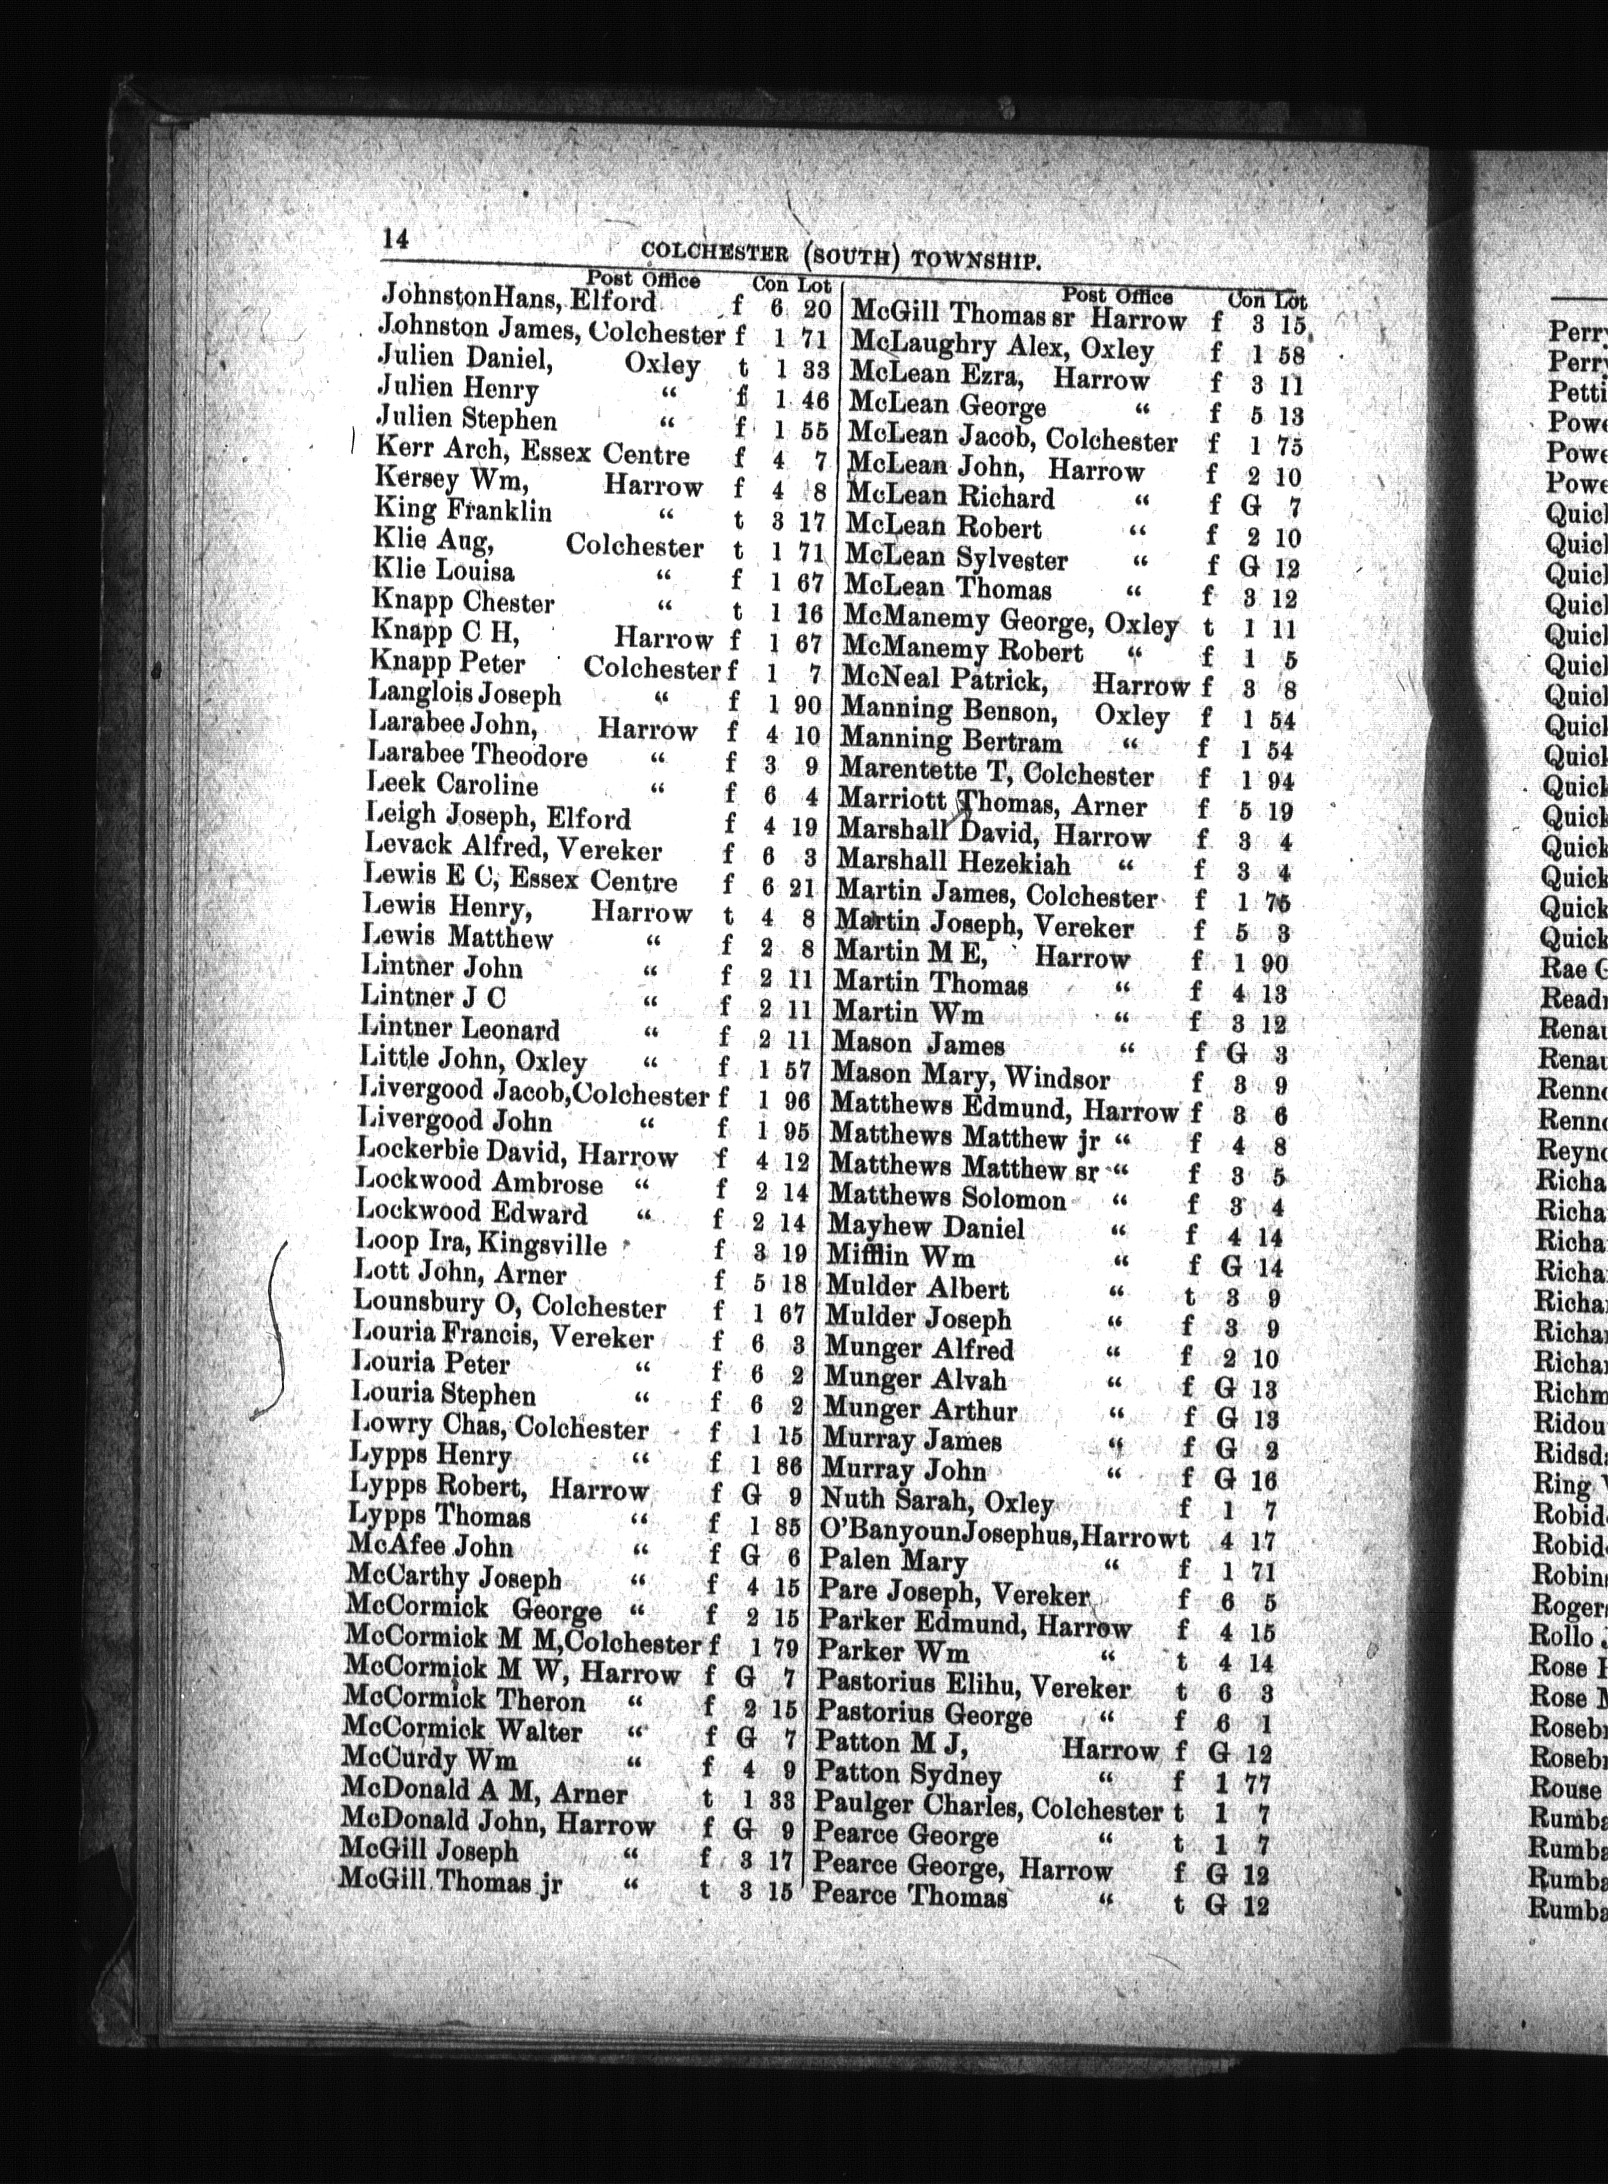 14
COLCHESTER (SOUTH) TOWNSHIP.
Post Office Con Lot
Johnston Hans, Elford f 6 20
Johnston James, Colchester f 1 71
Julien Daniel, Oxley t 1 33
Julien Henry “ f 1 46
Julien Stephen “ f 1 55
Kerr Arch, Essex Centre f 4 7
Kersey Wm, Harrow f 4 8
King Franklin “ t 3 17
Klie Aug, Colchester t 1 71
Klie Louisa “ f 1 67
Knapp Chester “ t 1 16
Knapp C H, Harrow f 1 67
Knapp Peter Colchester f 1 7
Langlois Joseph “ f 1 90
Larabee John, Harrow f 4 10
Larabee Theodore “ f 3 9
Leek Caroline “ f 6 4
Leigh Joseph, Elford f 4 19
Levack Alfred, Vereker f 6 3
Lewis E C, Essex Centre f 6 21
Lewis Henry, Harrow t 4 8
Lewis Matthew “ f 2 8
Lintner John “ f 2 11
Lintner J C “ f 2 11
Lintner Leonard “ f 2 11
Little John, Oxley “ f 1 57
Livergood Jacob, Colchester f 1 96
Livergood John “ f 1 95
Lockerbie David, Harrow f 4 12
Lockwood Ambrose “ f 2 14
Lockwood Edward “ f 2 14
Loop Ira, Kingsville f 3 19
Lott John, Arner f 5 18
Lounsbury O, Colchester f 1 67
Louria Francis, Vereker f 6 3
Louria Peter “ f 6 2
Louria Stephen “ f 6 2
Lowry Chas, Colchester f 1 15
Lypps Henry “ f 1 86
Lypps Robert, Harrow f G 9
Lypps Thomas “ f 1 85
McAfee John “ f G 6
McCarthy Joseph “ f 4 15
McCormick George “ f 2 15
McCormick M M, Colchester f 1 79
McCormick M W, Harrow f G 7
McCormick Theron “ f 2 15
McCormick Walter “ f G 7
McCurdy Wm “ f 4 9
McDonald A M, Arner t 1 33
McDonald John, Harrow f G 9
McGill Joseph “ f 3 17
McGill Thomas jr “ t 3 15
Post Office Con Lot
McGill Thomas sr Harrow f 3 15
McLaughry Alex, Oxley f 1 58
McLean Ezra, Harrow f 3 11
McLean George “ f 5 13
McLean Jacob, Colchester f 1 75
McLean John, Harrow f 2 10
McLean Richard “ f G 7
McLean Robert “ f 2 10
McLean Sylvester “ f G 12
McLean Thomas “ f 3 12
McManemy George, Oxley t 1 11
McManemy Robert “ f 1 5
McNeal Patrick, Harrow f 3 8
Manning Benson, Oxley f 1 54
Manning Bertram “ f 1 54
Marentette T, Colchester f 1 94
Marriott Thomas, Arner f 5 19
Marshall David, Harrow f 3 4
Marshall Hezekiah “ f 3 4
Martin James, Colchester f 1 75
Martin Joseph, Vereker f 5 3
Martin M E, Harrow f 1 90
Martin Thomas “ f 4 13
Martin Wm “ f 3 12
Mason James “ f G 3
Mason Mary, Windsor f 3 9
Matthews Edmund, Harrow f 3 6
Matthews Matthew jr “ f 4 8
Matthews Matthew sr “ f 3 5
Matthews Solomon “ f 3 4
Mayhew Daniel “ f 4 14
Mifflin Wm “ f G 14
Mulder Albert “ t 3 9
Mulder Joseph “ f 3 9
Munger Alfred “ f 2 10
Munger Alvah “ f G 13
Munger Arthur “ f G 13
Murray James “ f G 2
Murray John “ f G 16
Nuth Sarah, Oxley f 1 7
O'Banyoun Josephus, Harrow t 4 17
Palen Mary “ f 1 71
Pare Joseph, Vereker f 6 5
Parker Edmund, Harrow f 4 15
Parker Wm “ t 4 14
Pastorius Elihu, Vereker t 6 3
Pastorius George “ f 6 1
Patton M J, Harrow f G 12
Patton Sydney “ f 1 77
Paulger Charles, Colchester t 1 7
Pearce George “ t 1 7
Pearce George, Harrow f G 12
Pearce Thomas “ t G 12